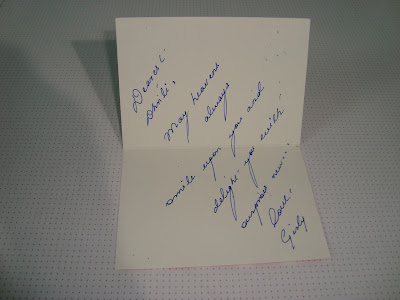 Dearest
May heavens
always
smile upon you and
delight you with
surprises new...
Love,
Girly